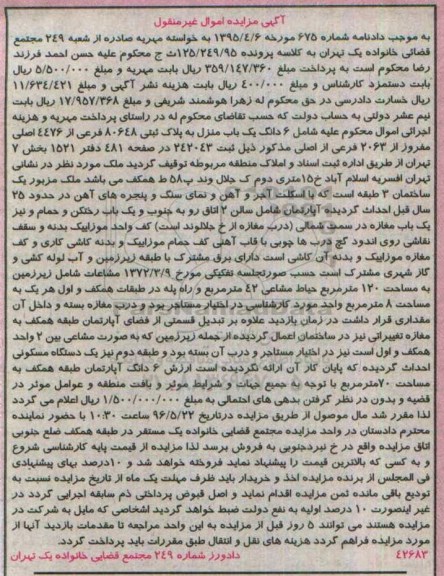 آگهی مزایده اموال غیرمنقول
به موجب دادنامه شماره ۶۷۵ مورخه ۱۳۹۵/۴/۶ به خواسته مهریه صادره از شعبه ۲۴۹ مجتمع
قضائی خانواده یک تهران به کلاسه پرونده ۱۲۵/۲۴۹/۹۵ث ج محکوم علیه حسن احمد فرزند
رضا محکوم است به پرداخت مبلغ ۳۵۹/۱۴۷/۳۶۰ ریال بابت مهریه و مبلغ ۵/۵۰۰/۰۰۰ ریال
بابت دستمزد کارشناس و مبلغ ۴۰۰/۰۰۰ ریال بابت هزینه نشر آگهی و مبلغ ۱۱/۶۳۴/۴۲۱
ریال خسارت دادرسی در حق محکوم له زهرا هوشمند شریفی و مبلغ ۱۷/۹۵۷/۳۶۸ ریال بابت
نیم عشر دولتی به حساب دولت که حسب تقاضای محکوم له در راستای پرداخت مهریه و هزینه
اجرائی اموال محکوم علیه شامل ۶ دانگ یک باب منزل به پلاک ثبتی ۸۰۶۴۸ فرعی از ۴۴۷۶ اصلی
مفروز از ۲۰۶۳ فرعی از اصلی مذکور ذیل ثبت ۲۴۲۰۴۳ در صفحه ۴۸۱ دفتر ۱۵۲۱ بخش ۷
تهران از طریق اداره ثبت اسناد و املاک منطقه مربوطه توقیف گردید ملک مورد نظر در نشانی
تهران افسریه اسلام آباد خ۱۵متری دوم ک جلال وند پ۵۸ ط همکف می باشد ملک مزبور یک
ساختمان ۳ طبقه است که با اسکلت آجر و آهن و نمای سنگ و پنجره های آهن در حدود ۲۵
سال قبل احداث گردیده آپارتمان شامل سالن ۲ اتاق رو به جنوب و یک باب رختکن و حمام و نیز
یک باب مغازه در سمت شمالی (درب مغازه از خ جلالوند است) کف واحد موزاییک بدنه و سقف
نقاشی روی اندود گچ درب ها چوبی با قاب آهنی کف حمام موزاییک و بدنه کاشی کاری و کف
مغازه موزاییک و بدنه آن کاشی است دارای برق مشترک با طبقه زیرزمین و آب لوله کشی و
گاز شهری مشترک است حسب صورتجلسه تفکیکی مورخ ۱۳۷۲/۳/۹ مشاعات شامل زیرزمین
به مساحت ۱۲۰ مترمربع حیاط مشاعی ۴۲ مترمربع و راه پله در طبقات همکف و اول هر یک به
مساحت ۸ مترمربع واحد مورد کارشناسی در اختیار مستاجر بود و درب مغازه بسته و داخل آن
مقداری قرار داشت در زمان بازدید علاوه بر تبدیل قسمتی از فضای آپارتمان طبقه همکف به
مغازه تغییراتی نیز در ساختمان اعمال گردیده از جمله زیرزمین که به صورت مشاعی بین ۲ واحد
همکف و اول است نیز در اختیار مستاجر و درب آن بسته بود و طبقه دوم نیز یک دستگاه مسکونی
احداث گردیده که پایان کار آن ارائه نگردیده است ارزش ۶ دانگ آپارتمان طبقه همکف به
مساحت ۷۰مترمربع با توجه به جمیع جهات و شرایط موثر و بافت منطقه و عوامل موثر در
قضیه و بدون در نظر گرفتن بدهی های احتمالی به مبلغ ۱/۵۰۰/۰۰۰/۰۰۰ ریال اعلام می گردد
لذا مقرر شد مال موصول از طریق مزایده درتاریخ ۹۶/۵/۲۲ ساعت ۱۰:۳۰ با حضور نماینده
محترم دادستان در واحد مزایده مجتمع قضایی خانواده یک مستقر در طبقه همکف ضلع جنوبی
اتاق مزایده واقع در خ نبردجنوبی به فروش برسد لذا مزایده از قیمت پایه کارشناسی شروع
و به کسی که بالاترین قیمت را پیشنهاد نماید فروخته خواهد شد و ۱۰درصد بهای پیشنهادی
فی المجلس از برنده مزایده اخذ و خریدار باید ظرف مهلت یک ماه از تاریخ مزایده نسبت به
تودیع باقی مانده ثمن مزایده اقدام نماید و اصل قبوض پرداختی ذم سابقه اجرایی گردد در
غیر اینصورت ۱۰ درصد اولیه به نفع دولت ضبط خواهد گردید اشخاصی که مایل به شرکت در
مزایده هستند می توانند ۵ روز قبل از مزایده به این واحد مراجعه تا مقدمات بازدید آنها از
مورد مزایده فراهم گردد هزینه های نقل و انتقال طبق مقررات باید پرداخت گردد.
۴۲۶۸۳ دادورز شماره ۲۴۹ مجتمع قضایی خانواده یک تهران